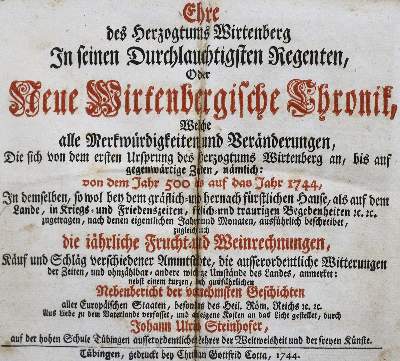 Ehre
des Herzogtums Wirtenberg
In seinen Durchlauchtigsten Regenten,
Oder
Neue Wirtenbergische Chronik,
Welche
alle Merkwürdigkeiten und Veränderungen,
Die sich von dem ersten Ursprung des Herzogtums Wirtenberg an, bis auf
gegenwärtige Zeiten, nämlich:
von dem Jahr 500 bis auf das Jahr 1744,
In demselben, sowol bey dem gräflich- und hernach fürstlichen Hause, als auf dem
Lande, in Kriegs- und Friedenszeiten, frölich- und traurigen Begebenheiten ꝛc. ꝛc.
zugetragen, nach denen eigentlichen Jahr und Monaten, ausführlich beschreibet,
zugleich auch
die jährliche Frucht- und Weinrechnungen,
Käuf und Schläg verschiedener Ammtstädte, die ausserordentliche Witterungen
der Zeiten, und ohnzählbar- andere wichtige Umstände des Landes, anmerket:
nebst einem kurzen, doch ausführlichen
Nebenbericht der vornehmsten Geschichten
aller Europäischen Staaten, besonders des Heil. Röm. Reichs ꝛc. ꝛc.
Aus Liebe zu dem Vaterlande verfasset, und auf eigene Kosten an das Licht gestellet, durch
Johann Ulrich Steinhofer,
auf der hohen Schule Tübingen ausserordentlicher Lehrer der Weltweisheit und der freyen Künste.
Tübingen, gedruckt bey Christian Gottfrid Cotta, 1744.